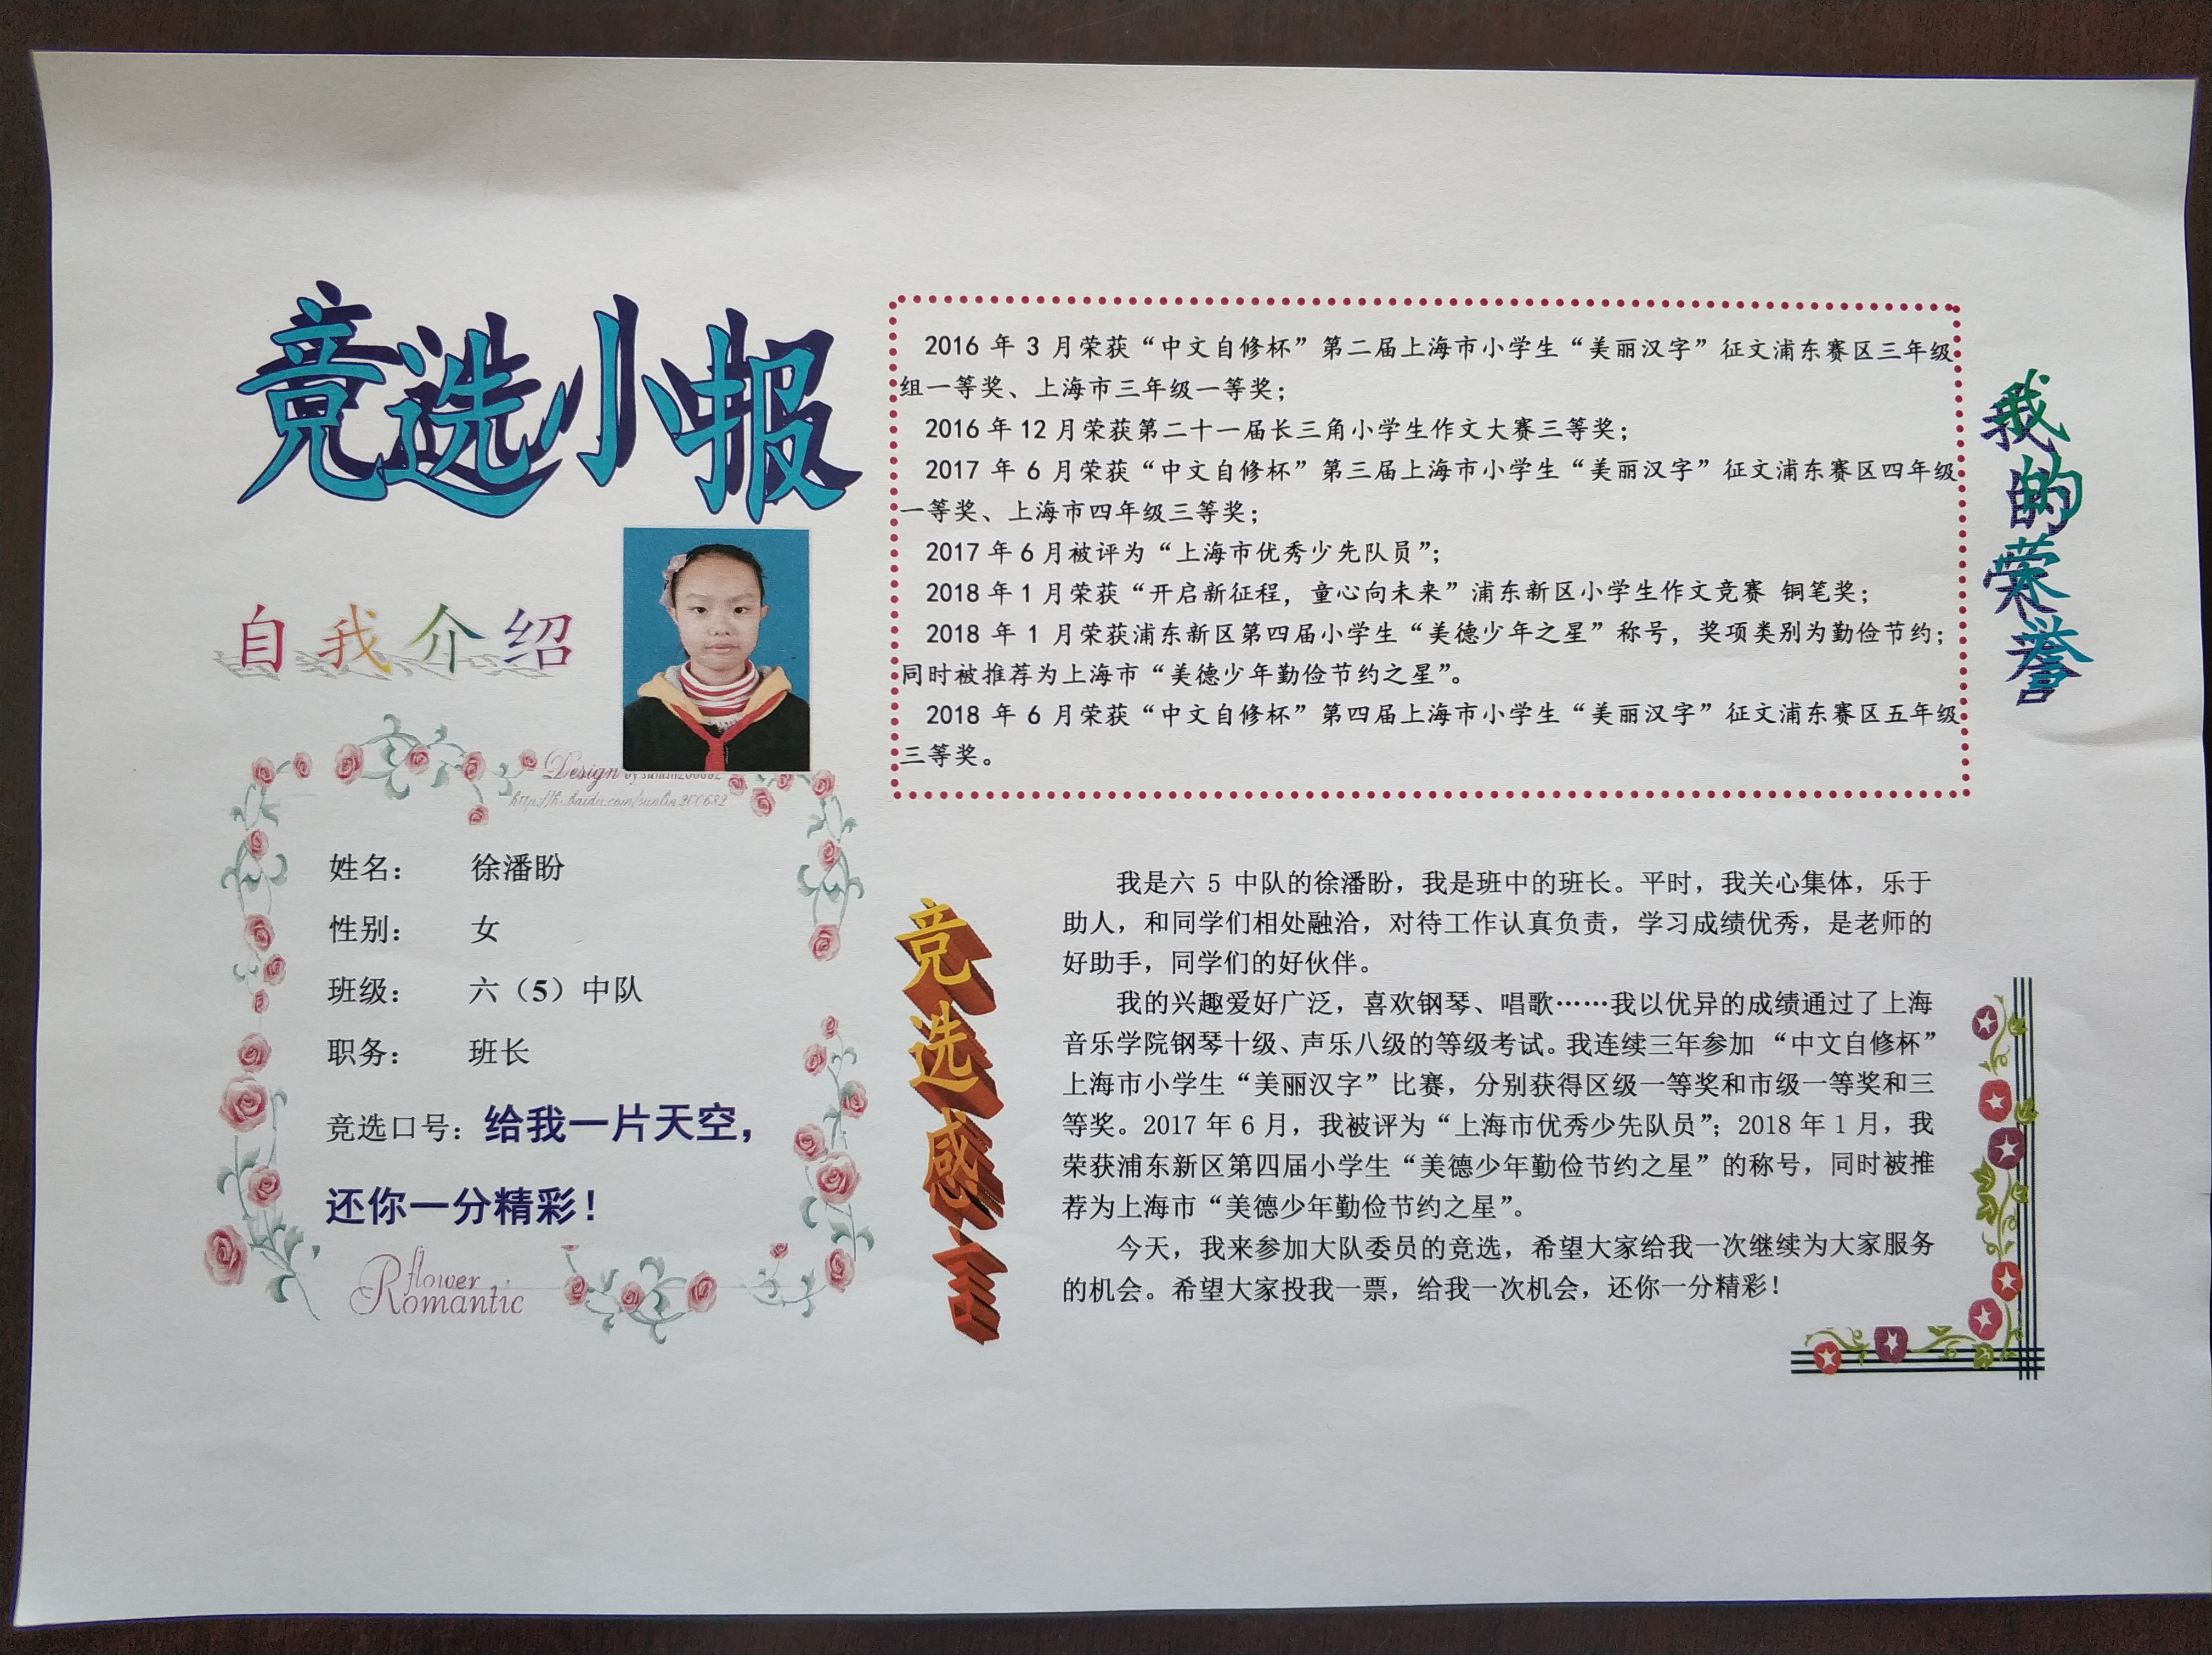 竞选小报
自我介绍
Design by sunlin200682
http://hi.baidu.com/sunlin200682
姓名： 徐潘盼
性别： 女
班级： 六（5）中队
职务： 班长
竞选口号：给我一片天空，
还你一分精彩！
flower
Romantic
2016 年 3 月荣获“中文自修杯”第二届上海市小学生“美丽汉字”征文浦东赛区三年级
组一等奖、上海市三年级一等奖；
2016 年 12 月荣获第二十一届长三角小学生作文大赛三等奖；
2017 年 6 月荣获“中文自修杯”第三届上海市小学生“美丽汉字”征文浦东赛区四年级
一等奖、上海市四年级三等奖；
2017 年 6 月被评为“上海市优秀少先队员”；
2018 年 1 月荣获“开启新征程，童心向未来”浦东新区小学生作文竞赛 铜笔奖；
2018 年 1 月荣获浦东新区第四届小学生“美德少年之星”称号，奖项类别为勤俭节约；
同时被推荐为上海市“美德少年勤俭节约之星”。
2018 年 6 月荣获“中文自修杯”第四届上海市小学生“美丽汉字”征文浦东赛区五年级
三等奖。
我的荣誉
竞选感言
我是六 5 中队的徐潘盼，我是班中的班长。平时，我关心集体，乐于
助人，和同学们相处融洽，对待工作认真负责，学习成绩优秀，是老师的
好助手，同学们的好伙伴。
我的兴趣爱好广泛，喜欢钢琴、唱歌……我以优异的成绩通过了上海
音乐学院钢琴十级、声乐八级的等级考试。我连续三年参加 “中文自修杯”
上海市小学生“美丽汉字”比赛，分别获得区级一等奖和市级一等奖和三
等奖。2017 年 6 月，我被评为“上海市优秀少先队员”；2018 年 1 月，我
荣获浦东新区第四届小学生“美德少年勤俭节约之星”的称号，同时被推
荐为上海市“美德少年勤俭节约之星”。
今天，我来参加大队委员的竞选，希望大家给我一次继续为大家服务
的机会。希望大家投我一票，给我一次机会，还你一分精彩！